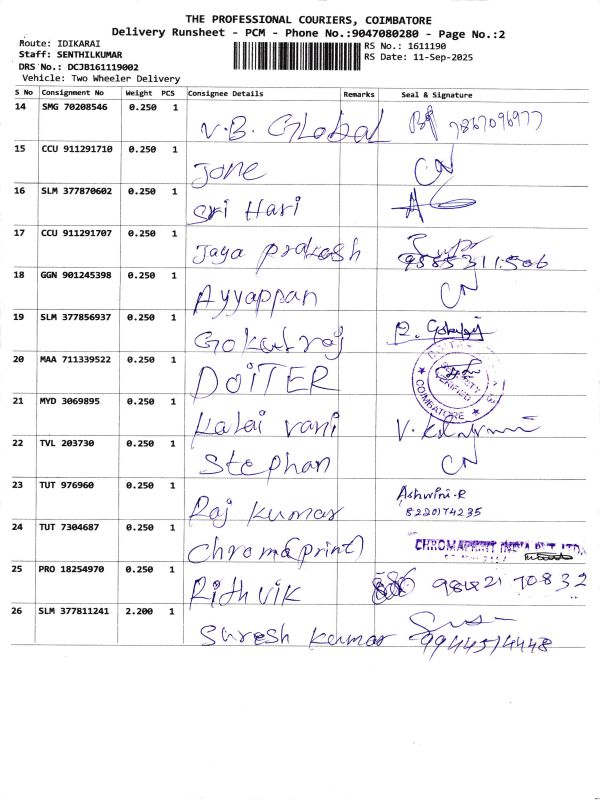 THE PROFESSIONAL COURIERS, COIMBATORE
Delivery Runsheet - PCM - Phone No.:9047080280 - Page No.:2
Route: IDIKARAI
Staff: SENTHILKUMAR
DRS No.: DCJB161119002
Vehicle: Two Wheeler Delivery
RS No.: 1611190
RS Date: 11-Sep-2025
S No Consignment No Weight PCS Consignee Details Remarks Seal & Signature
14 SMG 70208546 0.250 1 V.B. Global 7867096977
15 CCU 911291710 0.250 1 Jone CN
16 SLM 377870602 0.250 1 Sri Hari
17 CCU 911291707 0.250 1 Jaya prakash
18 GGN 901245398 0.250 1 Ayyappan CN
19 SLM 377856937 0.250 1
20 MAA 711339522 0.250 1 DOITER COIMBATORE
21 MYD 3069895 0.250 1 Kalai vani
22 TVL 203730 0.250 1 Stephan CN
23 TUT 976960 0.250 1 Raj Kumar Ashwini.R 8220174235
24 TUT 7304687 0.250 1 Chroma(print) CHROMAPRINT INDIA PVT LTD
25 PRO 18254970 0.250 1 Rithvik
26 SLM 377811241 2.200 1 Suresh Kumar